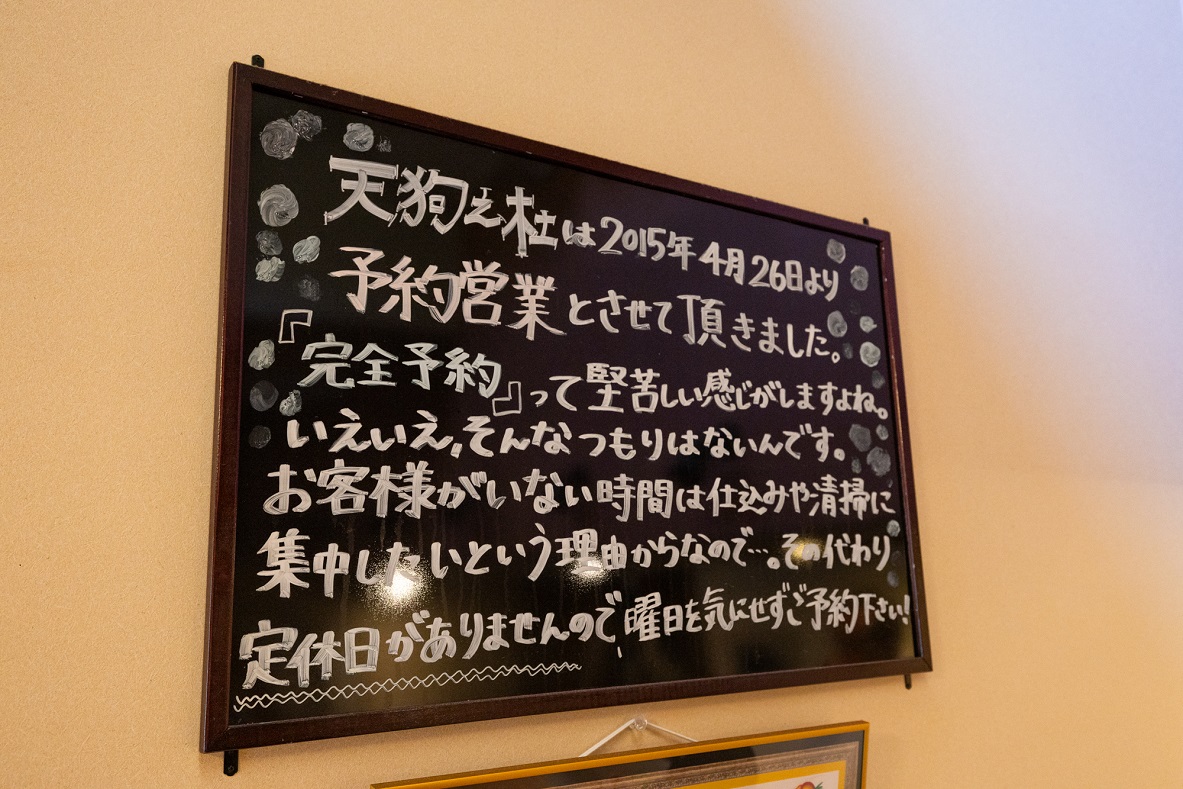 天狗之杜は2015年4月26日より
予約営業とさせて頂きました。
『完全予約』って堅苦しい感じがしますよね。
いえいえ、そんなつもりはないんです。
お客様がいない時間は仕込みや清掃に
集中したいという理由からなので…。その代わり
定休日がありませんので、曜日を気にせずご予約下さい!